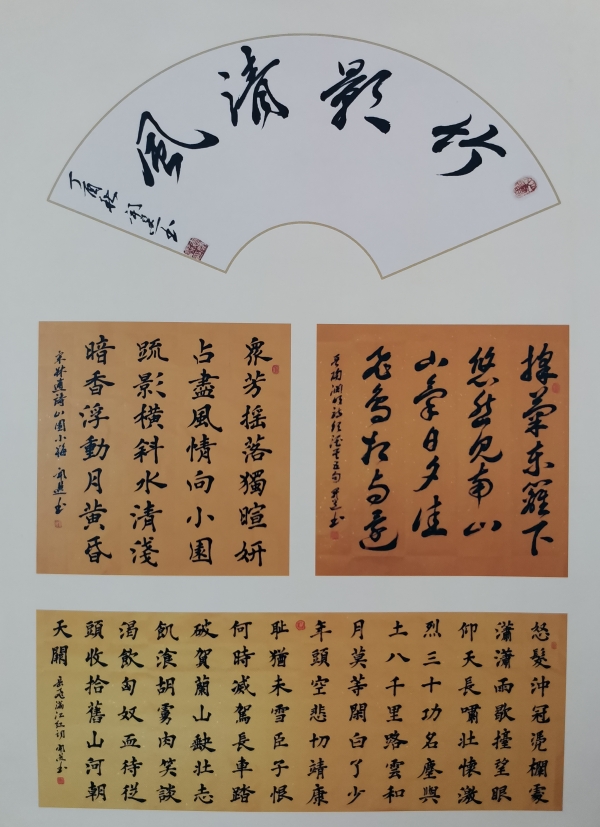 竹影清風
丁酉秋 书
眾芳揺落獨暄妍
占盡風情向小園
疏影橫斜水清淺
暗香浮動月黄昏
宋林逋詩山園小梅 书
採菊东籬下
悠然见南山
山氣日夕佳
飛鳥相与還
书
怒髮沖冠凭欄處
瀟瀟雨歇擡望眼
仰天長嘯壯懷激
烈三十功名塵與
土八千里路雲和
月莫等閑白了少
年頭空悲切靖康
耻猶未雪臣子恨
何時滅駕長車踏
破賀蘭山缺壯志
飢飡胡虜肉笑談
渴飲匈奴血待従
頭收拾舊山河朝
天闕
岳飛滿江紅词 书